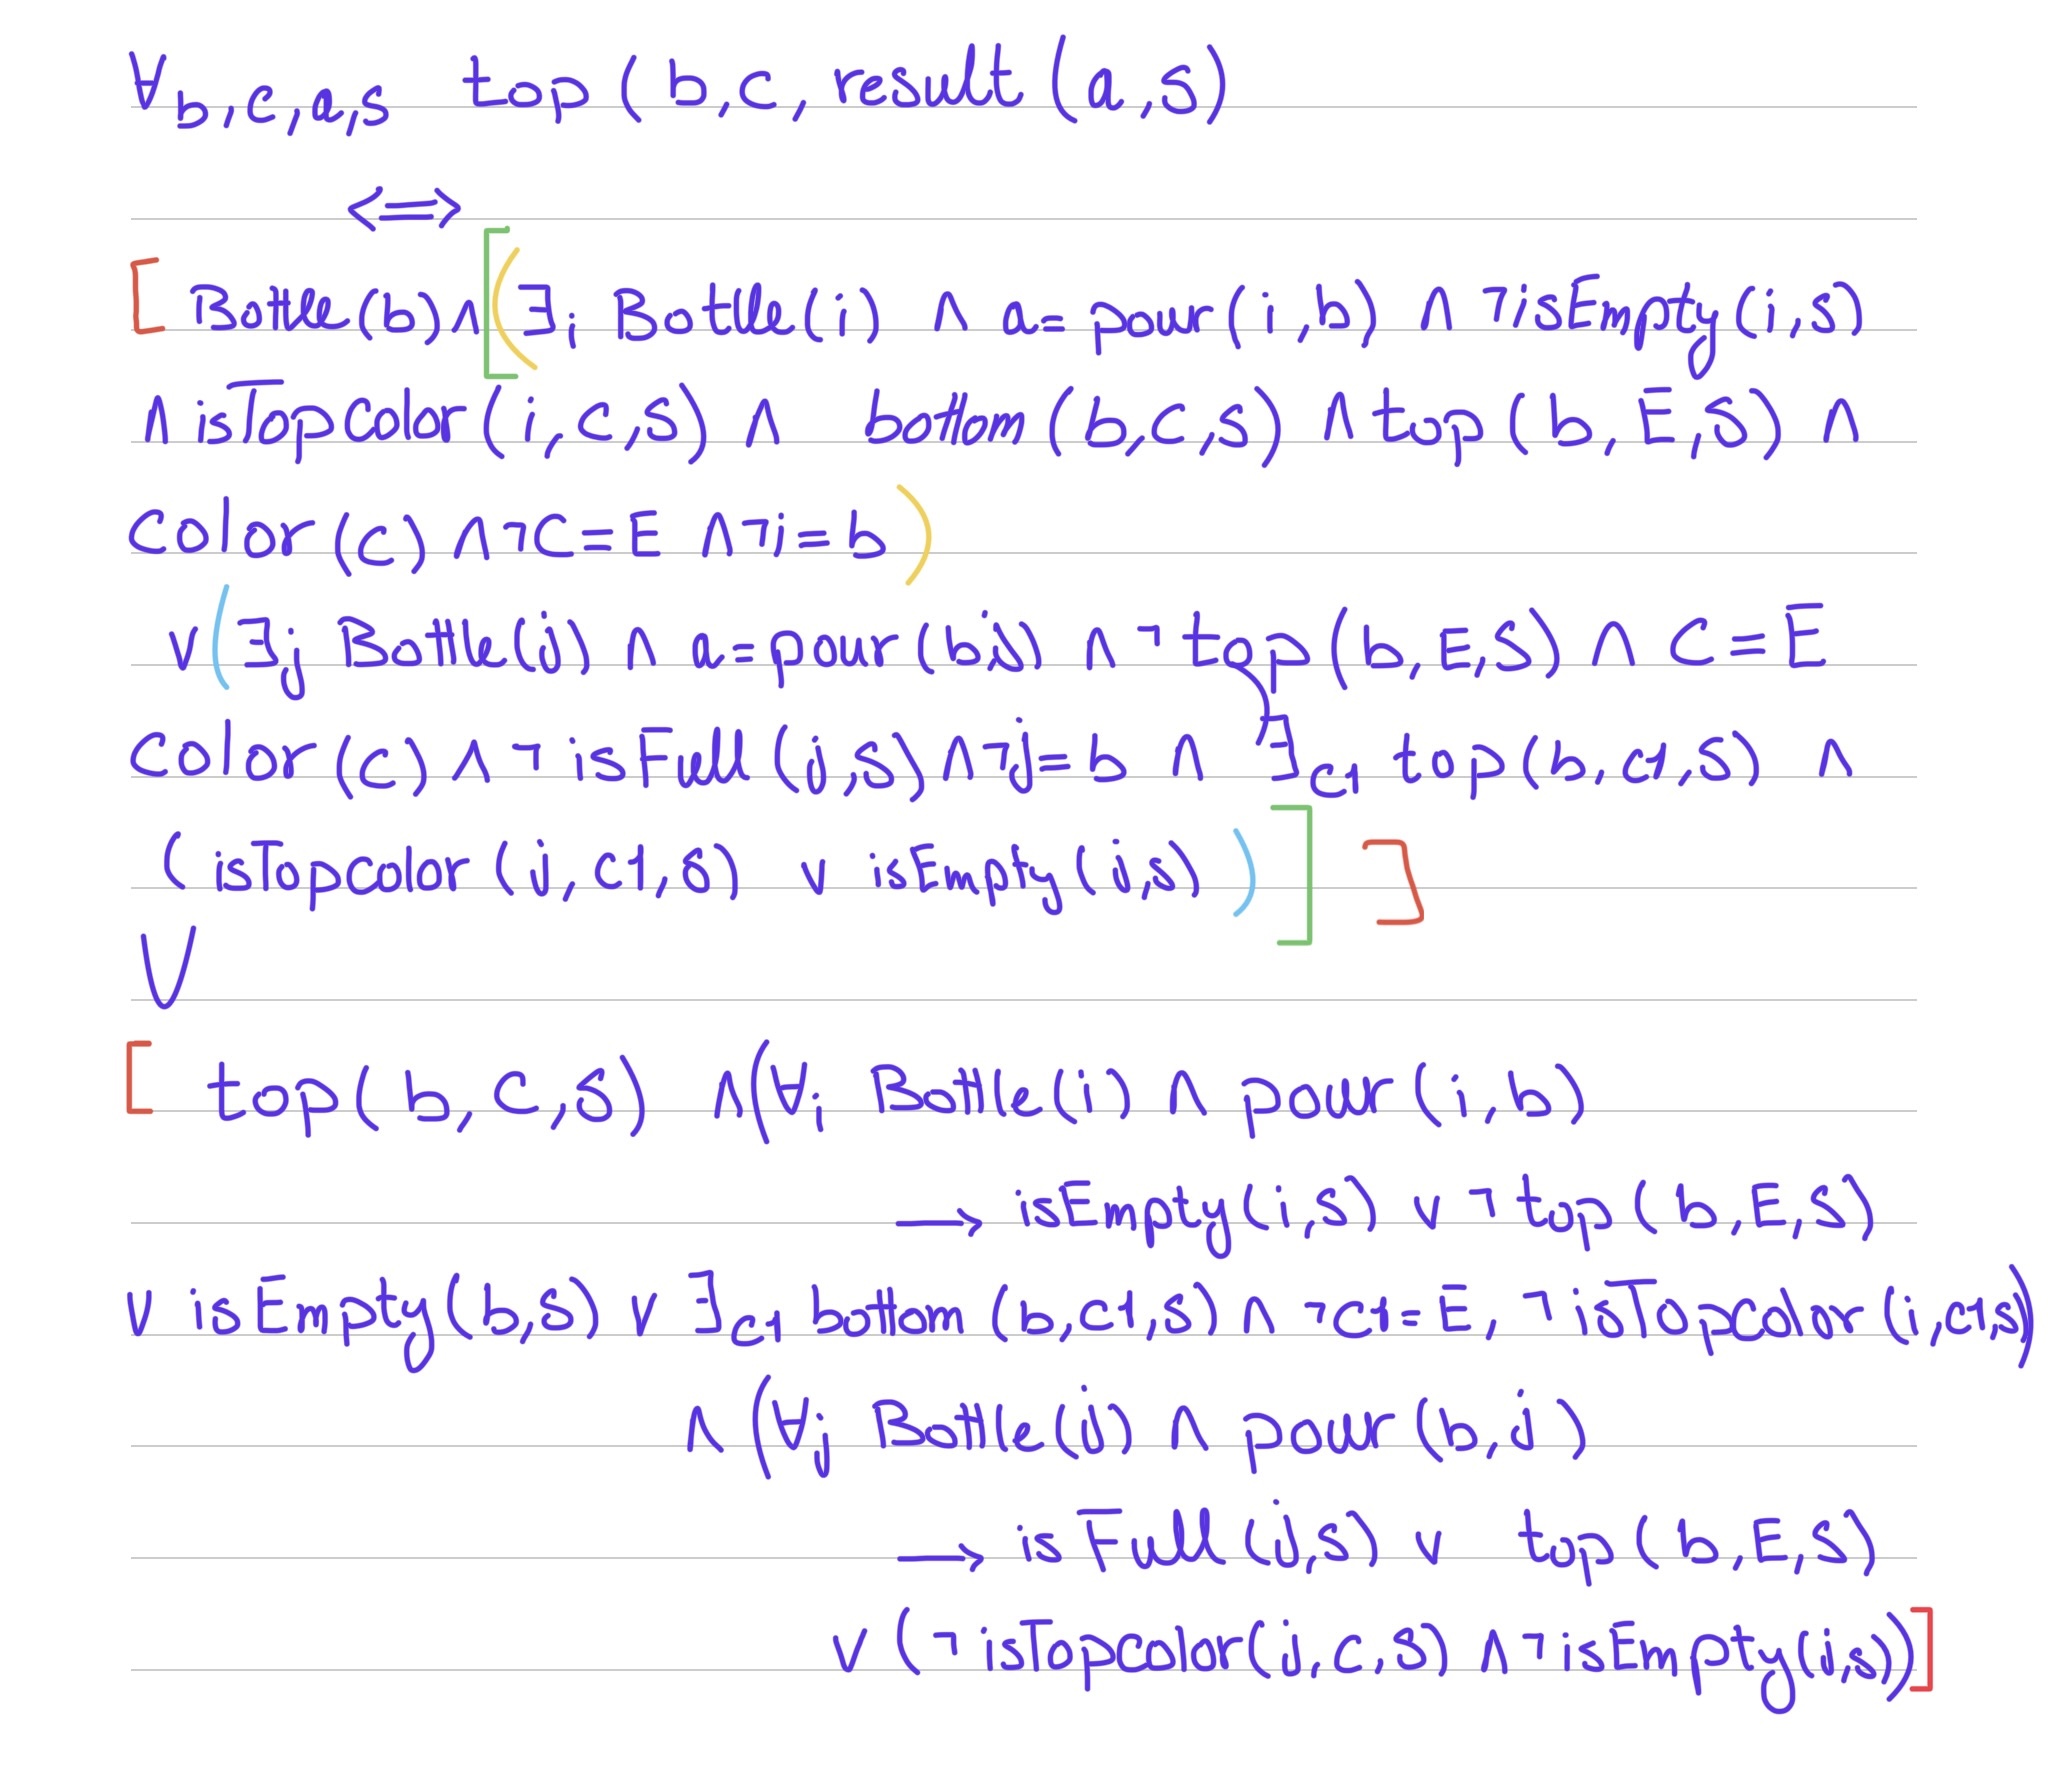 ∀b,c,a,s top (b,c,result(a,s)
<=>
[ Bottle(b) ∧ [(∃i Bottle(i) ∧ a = pour(i,b) ∧ ¬isEmpty(i,s)
∧ isTopColor(i,c,s) ∧ bottom(b,c,s) ∧ top(b,E,S) ∧
Color(c) ∧ ¬C=E ∧ ¬i=b)
∨ (∃j Bottle(j) ∧ a=pour(b,j) ∧ ¬top(b,E,S) ∧ C=E
Color(c) ∧ ¬isFull(j,s) ∧ ¬j=b ∧ ∃c1 top(b,c1,s) ∧
(isTopColor(j,c1,s) ∨ isEmpty(j,s))]]
∨
[ top(b,C,S) ∧ (∀i Bottle(i) ∧ pour(i,b)
→ isEmpty(i,s) ∨ ¬top(b,E,S)
∨ isEmpty(b,s) ∨ ∃c1 bottom(b,c1,s) ∧ ¬c1=E, ¬isTopColor(i,c1,s))
∧ (∀j Bottle(j) ∧ pour(b,j)
→ isFull(j,s) ∨ top(b,E,S)
∨ (¬isTopColor(j,c,s) ∧ ¬isEmpty(j,s))]